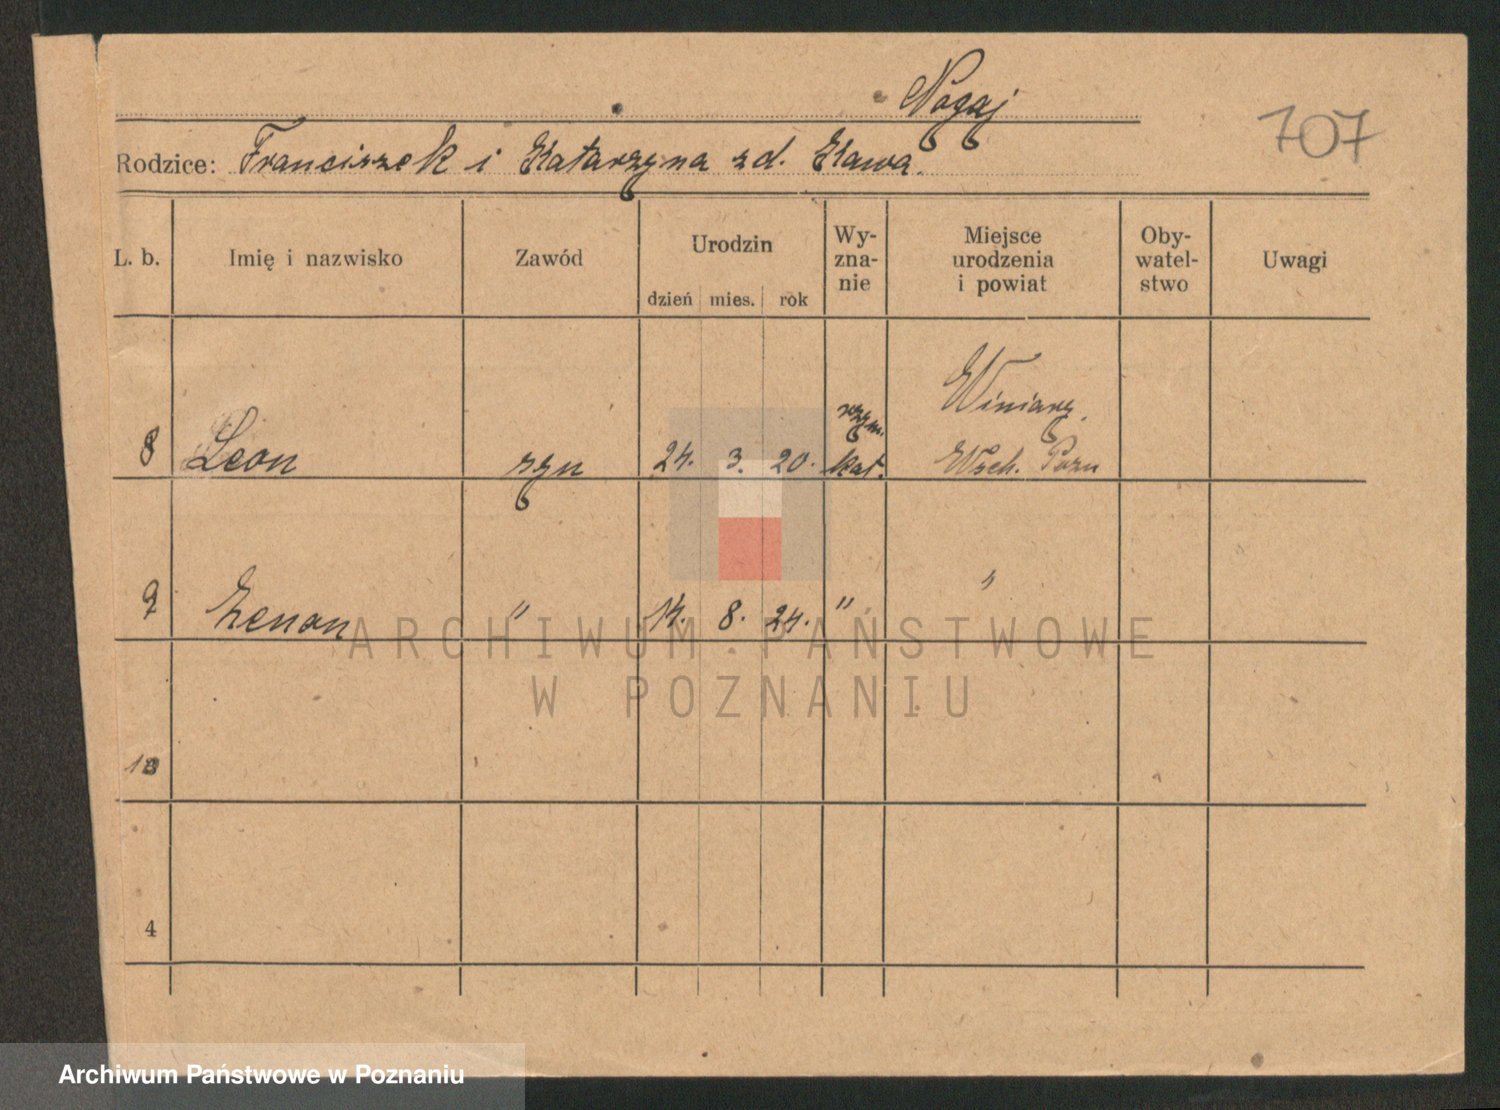 Nogaj
707
Rodzice: Franciszek i Katarzyna zd. Kawa.
L. b. Imię i nazwisko Zawód Urodzin dzień mies. rok Wy-zna-nie Miejsce urodzenia i powiat Oby-watel-stwo Uwagi
8 Leon syn 24. 3. 20. rzym. kat. Winiary. Wsch. Pozn
9 Zenon " 14. 8. 24. " "
10
4
ARCHIWUM PAŃSTWOWE
W POZNANIU
Archiwum Państwowe w Poznaniu